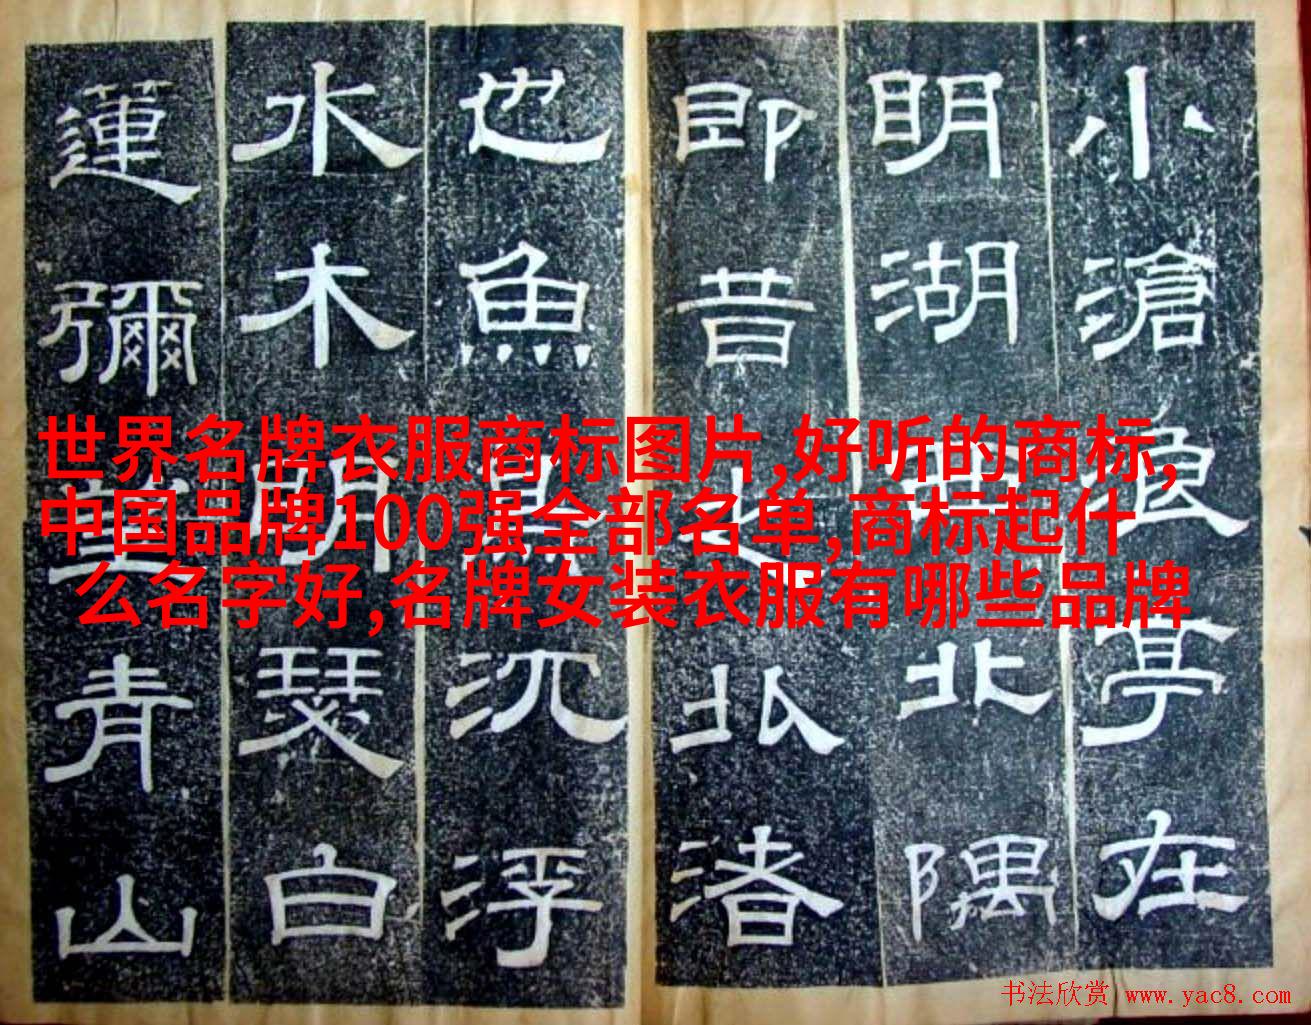 小滄浪亭在
明湖西北隅
即昔之北渚
也魚鳥沉浮
水木明瑟白
蓮彌望青山
世界名牌衣服商标图片,好听的商标,
中国品牌100强全部名单,商标起什
么名字好,名牌女装衣服有哪些品牌
书法欣赏 www.yac8.com